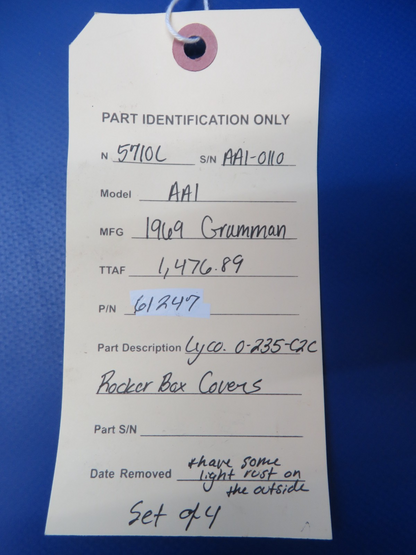 PART IDENTIFICATION ONLY
N 5710L S/N AA1-0110
Model AA1
MFG 1969 Grumman
TTAF 1,476.89
P/N 61247
Part Description Lyco. O-235-C2C
Rocker Box Covers
Part S/N
Date Removed *have some
light rust on
the outside
Set of 4